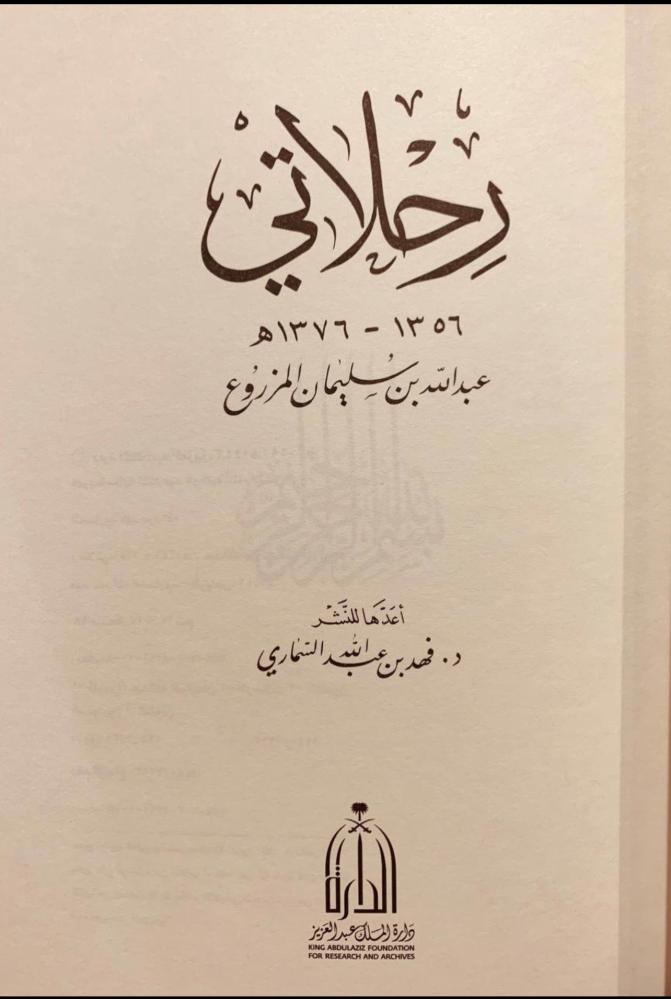 رحلاتي
١٣٥٦ - ١٣٧٦هـ
عبدالله بن سليمان المزروع
أعدَّها للنَّشر
د. فهد بن عبدالله السماري
الدارة
دارة الملك عبدالعزيز
KING ABDULAZIZ FOUNDATION
FOR RESEARCH AND ARCHIVES